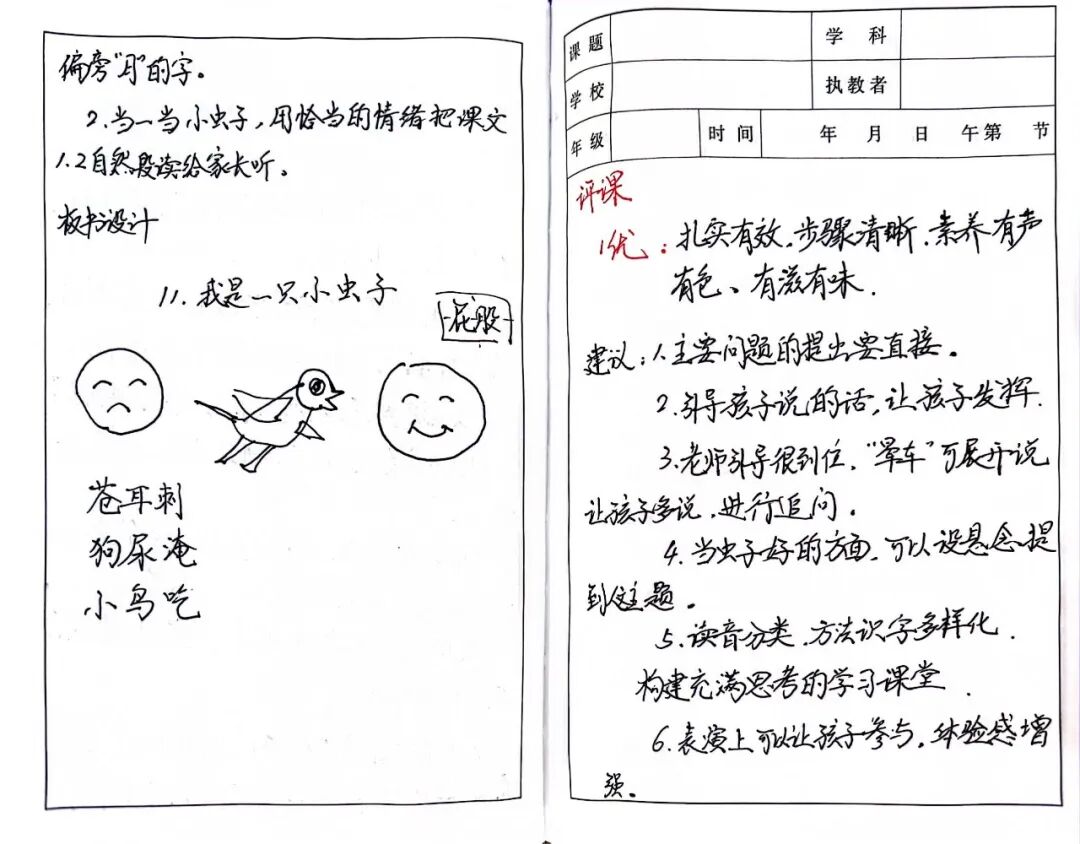 偏旁“月”的字。
2.当一当小虫子，用恰当的情绪把课文
1.2自然段读给家长听。
板书设计
11.我是一只小虫子
屁股
苍耳刺
狗尿淹
小鸟吃
课题 学科
学校 执教者
年级 时间 年 月 日 午第 节
评课
1优：扎实有效.步骤清晰.素养有声
有色、有滋有味.
建议：1.主要问题的提出要直接。
2.引导孩子说的话,让孩子发挥.
3.老师引导很到位，“晕车”可展开说
让孩子多说，进行追问。
4.当虫子好的方面，可以设悬念.提
到主题。
5.读音分类.方法识字多样化.
构建充满思考的学习课堂.
6.表演上可以让孩子参与，体验感增
强。